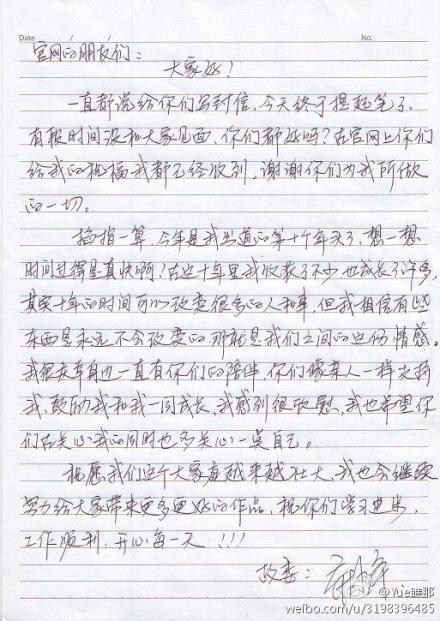 Date / /
No.
官网的朋友们：
大家好！
一直都说给你们写封信，今天终于提起笔了，
有段时间没和大家见面，你们都好吗？在官网上你们
给我的祝福我都已经收到，谢谢你们为我所做
的一切。
掐指一算，今年是我出道的第十个年头了，想一想
时间过得是真快啊？在这十年里我收获了不少也成长了许多，
其实十年的时间可以改变很多的人和事，但我相信有些
东西是永远不会改变的那就是我们之间的这份情感。
我很庆幸身边一直有你们的陪伴，你们像家人一样支持
我、鼓励我和我一同成长，我感到很欣慰，我也希望你
们在关心我的同时也多关心一点自己。
祝愿我们这个大家庭越来越壮大，我也会继续
努力给大家带来更多更好的作品，祝你们学习进步，
工作顺利，开心每一天！！！
@Yue瞧那
weibo.com/u/3198396485